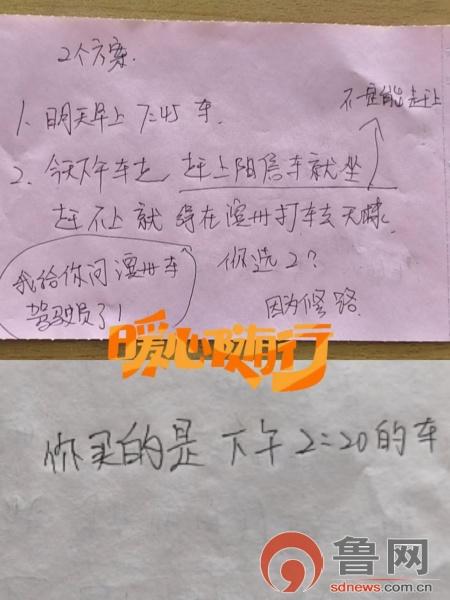 2个方案.
不一定能赶上
1. 明天早上 7:45 车.
2. 今天下午车走 赶上阳信车就坐
赶不上就得在滨州打车去无棣.
你选2?
我给你问滨州车
驾驶员了!
因为修路.
暖心随行
你买的是下午2:20的车
鲁网
sdnews.com.cn